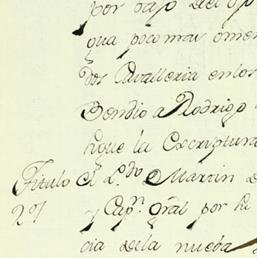 por bajo del ojo
gua poco mas omen
dos Cavalleria enlos
Bendio a Rodrigo
hque la Escriptura
Titulo El L.do Martin de
201 y Capn. gral por
cia dela nueba